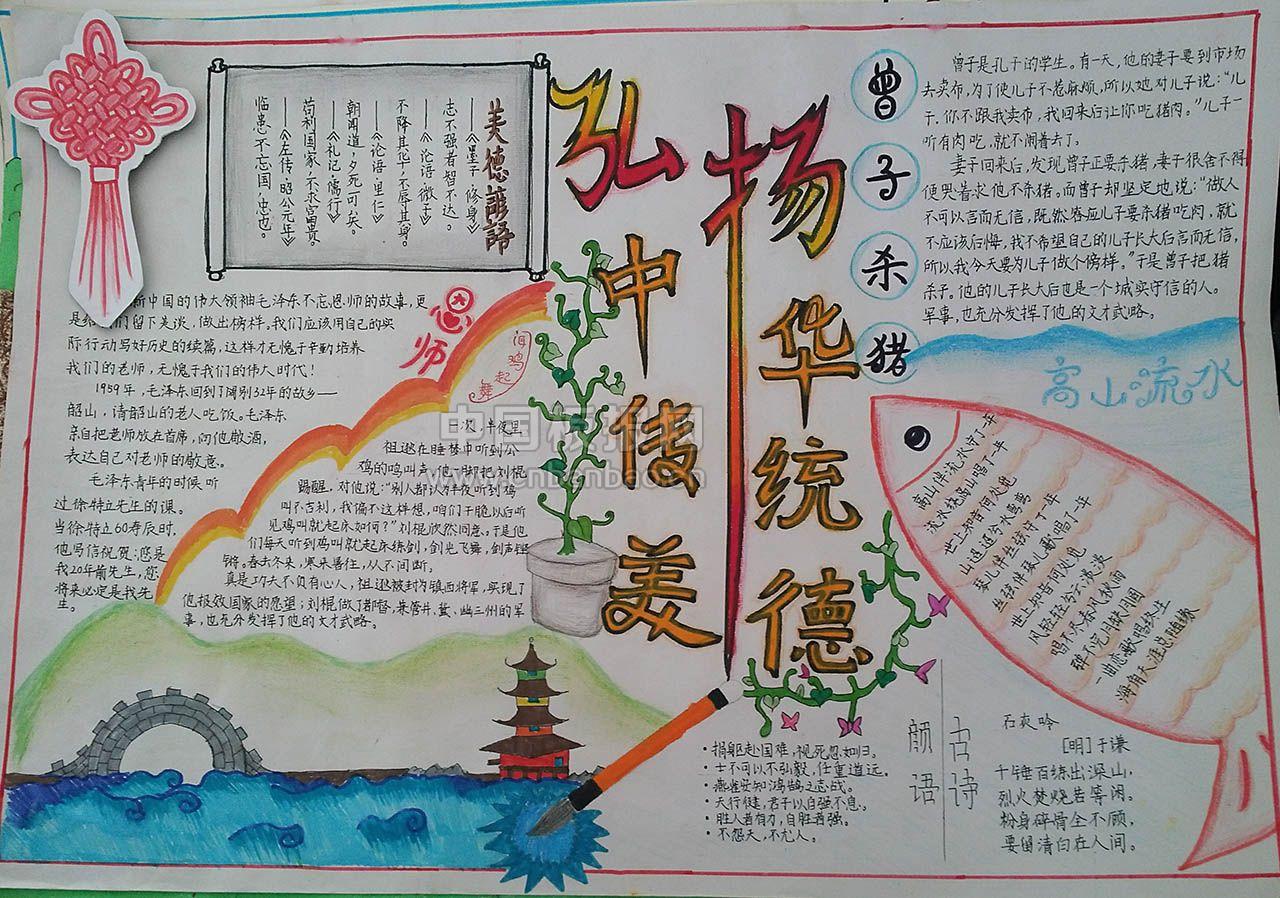 弘扬
中华传统美德
美德谚语
——《墨子·修身》
志不强者智不达。
——《论语·微子》
不降其志,不辱其身。
——《论语·里仁》
朝闻道,夕死可矣。
——《礼记·儒行》
苟利国家,不求富贵。
——《左传·昭公元年》
临患不忘国,忠也。
曾子杀猪
曾子是孔子的学生。有一天,他的妻子要到市场
去卖布,为了使儿子不惹麻烦,所以她对儿子说:“儿
子,你不跟我卖布,我回来后让你吃猪肉。”儿子一
听有肉吃,就不闹着去了。
妻子回来后,发现曾子正要杀猪,妻子很舍不得
便哭着求他不杀猪。而曾子却坚定地说:“做人
不可以言而无信,既然答应儿子要杀猪吃肉,就
不应该后悔,我不希望自己的儿子长大后言而无信,
所以我今天要为儿子做个傍样。”于是曾子把猪
杀子。他的儿子长大后也是一个城实守信的人。
军事,也充分发挥了他的文才武略。
恩师
新中国的伟大领袖毛泽东不忘恩师的故事,更
是给我们留下美谈,做出榜样。我们应该用自己的实
际行动写好历史的续篇,这样才无愧于辛勤培养
我们的老师,无愧于我们的伟大时代!
1959年,毛泽东回到了阔别32年的故乡——
韶山,请韶山的老人吃饭。毛泽东
亲自把老师放在首席,向他敬酒,
表达自己对老师的敬意。
毛泽东青年的时候听
过徐特立先生的课。
当徐特立60寿辰时,
他写信祝贺:您是
我20年前先生,您
将来必定是我先
生。
闻鸡起舞
一次,半夜里
祖逖在睡梦中听到公
鸡的鸣叫声,他一脚把刘棍
踢醒,对他说:“别人都认为半夜听到鸡
叫不吉利,我偏不这样想,咱们干脆以后听
见鸡叫就起床如何?”刘棍欣然同意。于是他
们每天听到鸡叫就起床练剑,剑光飞舞,剑声铿
锵。春去冬来,寒来暑往,从不间断。
真是功夫不负有心人,祖逖被封为镇西将军,实现了
他报效国家的愿望;刘棍做了都督,兼管并、蓟、幽三州的军
事,也充分发挥了他的文才武略。
高山流水
高山伴流水守了一年
流水绕高山唱了一年
世上知音何处觅
山迢迢兮水
琴儿伴弦
弦儿伴琴
世上知音何处觅
风轻轻兮云淡淡
唱不尽春风秋雨
一曲恋歌唱秋生
海角天涯总随缘
颜语
·捐躯赴国难,视死忽如归。
·士不可以不弘毅,任重道远。
·燕雀安知鸿鹄之志哉。
·天行健,君子以自强不息。
·胜人者有力,自胜者强。
·不怨天,不尤人。
古诗
石灰吟
[明]于谦
千锤百练出深山,
烈火焚烧若等闲。
粉身碎骨全不顾,
要留清白在人间。
中国板报网
www.cnbanbao.cn